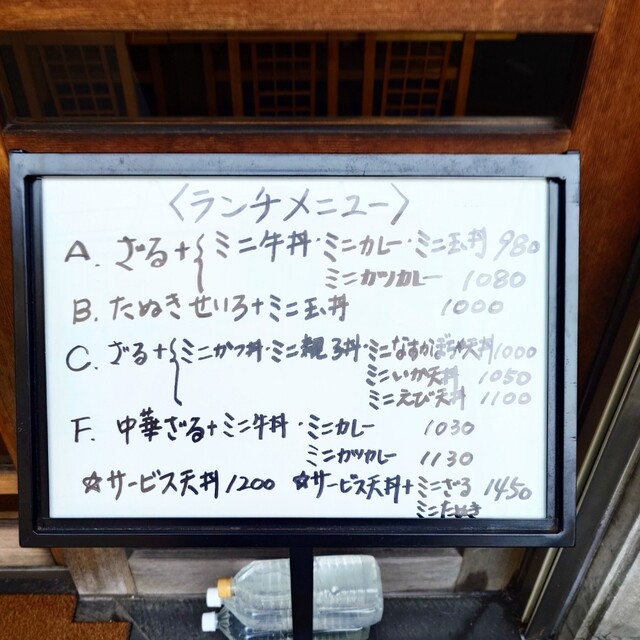 〈ランチメニュー〉
A. ざる+{ミニ牛丼・ミニカレー・ミニ玉丼 980
ミニカツカレー 1080
B. たぬきせいろ+ミニ玉丼 1000
C. ざる+{ミニカツ丼・ミニ親子丼・ミニなすかぼちゃ天丼 1000
ミニいか天丼 1050
ミニえび天丼 1100
F. 中華ざる+ミニ牛丼・ミニカレー 1030
ミニカツカレー 1130
☆サービス天丼 1200 ☆サービス天丼+ミニざる 1450
ミニたぬき